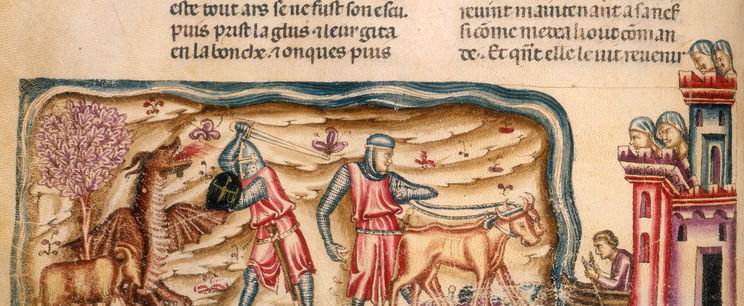 este tout ars se ne fust son escu.
puis prist la glus ⁊ leur gita
en la bouche. ⁊ onques puis
reuint maintenant a
si cōme medea li out coman
de. Et qñt ele le uit reuenir